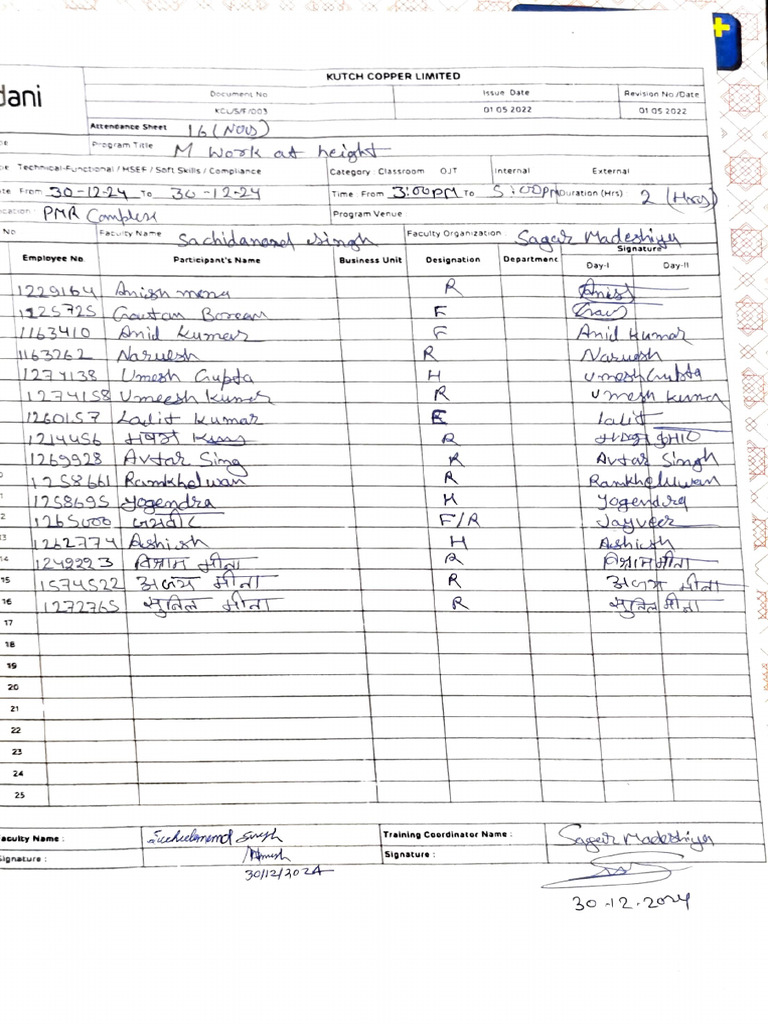 dani
KUTCH COPPER LIMITED
Document No Issue Date Revision No /Date
KCL/S/F/003 01 05 2022 01 05 2022
Attendance Sheet 16 (NOS)
Program Title M Work at height
Technical-Functional / HSEF / Soft Skills / Compliance Category : Classroom OJT Internal External
From 30-12-24 To 30-12-24 Time : From 3:00PM To 5:00PM Duration (Hrs) 2 (Hrs)
PMR Complex Program Venue
No Faculty Name Sachidanand Singh Faculty Organization : Sagar Madeshiya
Employee No. Participant's Name Business Unit Designation Department Signature
Day-I Day-II
1229164 Anish mena R Anish
1125725 Gautan F
1163410 Anid Kumar F Anid Kumar
1163262 Naruesh R Naruesh
1274138 Umesh Gupta H Umesh Gupta
1274158 Umeesh Kumar R Umesh Kumar
1260157 Lalit Kumar E Lalit
1214456 R
1269928 Avtar Sing R Avtar Singh
1258661 Ramkhelwan R Ramkheluwan
1258695 Yogendra H Yogendra
1265000 जयवीर F/R Jayveer
13 1262774 Ashish H Ashish
14 1249223 विश्राम मीना R विश्राम मीना
15 1574522 अजय मीना R अजय मीना
16 1272765 सुनिल मीना R सुनिल मीना
17
18
19
20
21
22
23
24
25
Faculty Name : Sachidanand Singh Training Coordinator Name : Sagar Madeshiya
Signature : Signature :
30/12/2024
30-12-2024